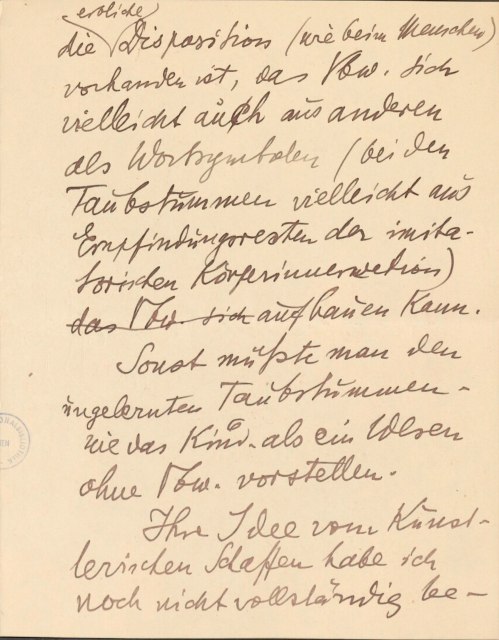 erbliche
die Disposition (wie beim Menschen)
vorhanden ist, das Vbw. sich
vielleicht auch aus anderen
als Wortsymbolen (bei den
Taubstummen vielleicht aus
Empfindungsresten der imita-
torischen Körperinnervation)
das Vbw. sich aufbauen kann.
Sonst müßte man den
ungelernten Taubstummen -
wie das Kind - als ein Wesen
ohne Vbw. vorstellen.
Ihre Idee vom künst-
lerischen Schaffen habe ich
noch nicht vollständig be-